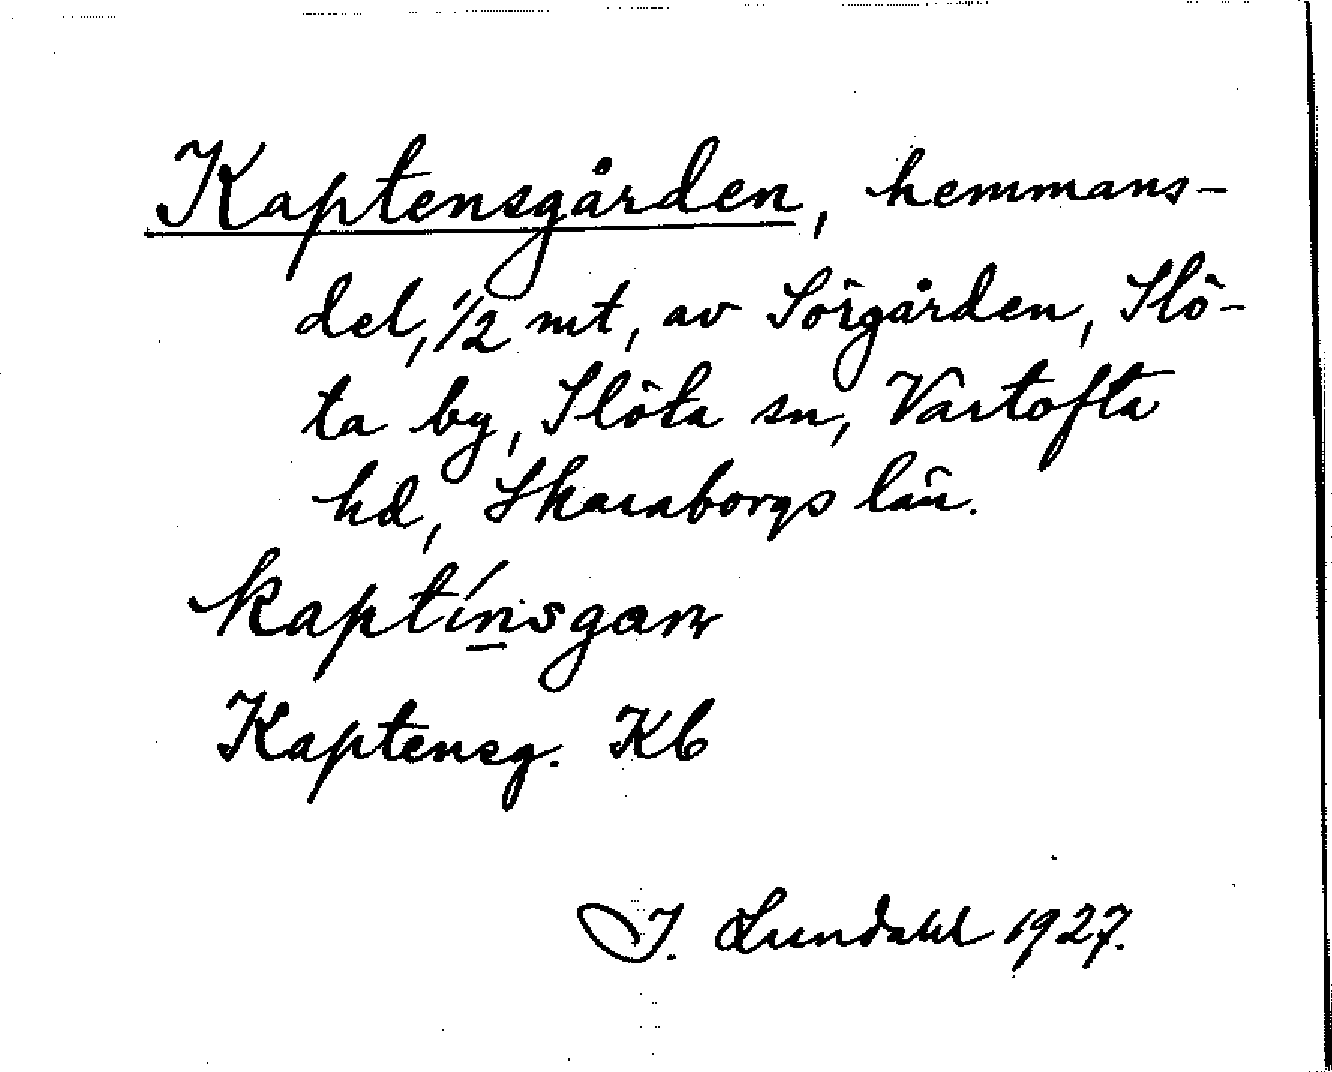 Kaptensgården, hemmans-
del, 1/2 mt, av Sörgården, Slö-
ta by, Slöta sn, Vartofta
hd, Skaraborgs län.
kaptínsgaṛn
Kaptensg. Kb
I. Lundahl 1927.